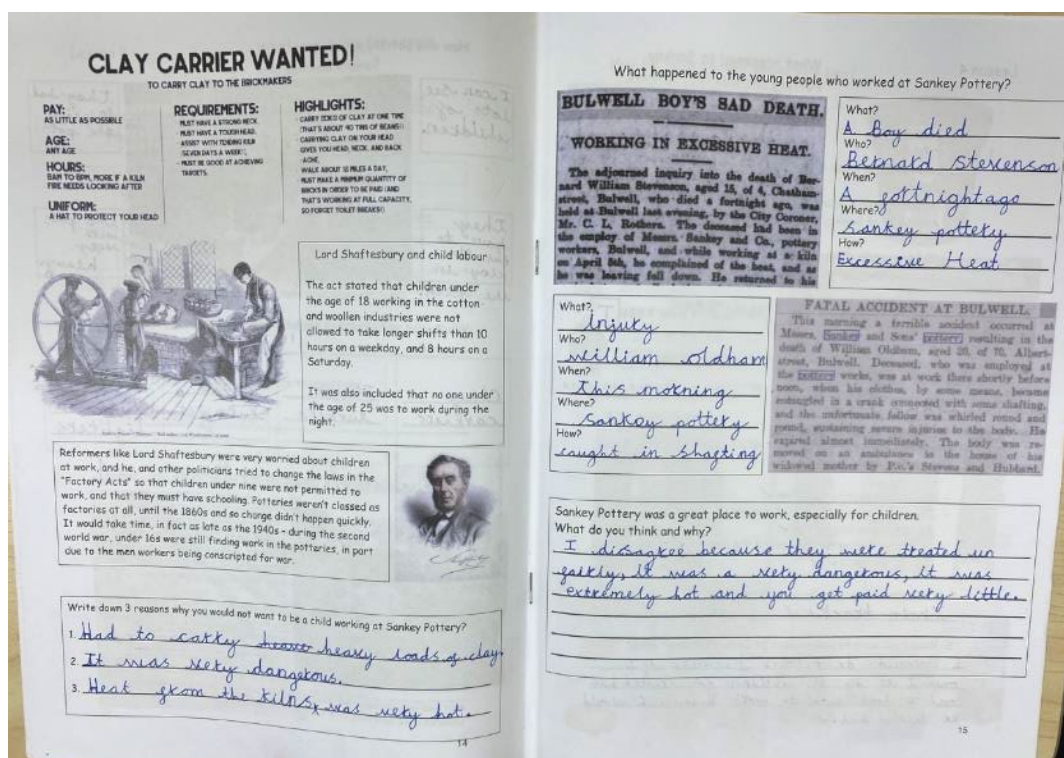 CLAY CARRIER WANTED!
TO CARRY CLAY TO THE BRICKMAKERS
PAY:
AS LITTLE AS POSSIBLE
AGE:
ANY AGE
HOURS:
6AM TO 8PM, MORE IF A KILN
FIRE NEEDS LOOKING AFTER
UNIFORM:
A HAT TO PROTECT YOUR HEAD
REQUIREMENTS:
· MUST HAVE A STRONG NECK
· MUST HAVE A TOUGH HEAD.
· ASSIST WITH TENDING KILN
(SEVEN DAYS A WEEK!),
· MUST BE GOOD AT ACHIEVING
TARGETS.
HIGHLIGHTS:
· CARRY OF CLAY AT ONE TIME
(THAT'S ABOUT 40 TINS OF BEANS!)
· CARRYING CLAY ON YOUR HEAD
GIVES YOU HEAD, NECK, AND BACK
ACHE.
WALK ABOUT MILES A DAY,
MUST MAKE A MINIMUM QUANTITY OF
BRICKS IN ORDER TO BE PAID (AND
THAT'S WORKING AT FULL CAPACITY,
SO FORGET TOILET BREAKS!)
Lord Shaftesbury and child labour
The act stated that children under
the age of 18 working in the cotton
and woollen industries were not
allowed to take longer shifts than 10
hours on a weekday, and 8 hours on a
Saturday.
It was also included that no one under
the age of 25 was to work during the
night.
Reformers like Lord Shaftesbury were very worried about children
at work, and he, and other politicians tried to change the laws in the
"Factory Acts" so that children under nine were not permitted to
work, and that they must have schooling. Potteries weren't classed as
factories at all, until the 1860s and so change didn't happen quickly.
It would take time, in fact as late as the 1940s - during the second
world war, under 16s were still finding work in the potteries, in part
due to the men workers being conscripted for war.
Write down 3 reasons why you would not want to be a child working at Sankey Pottery?
1. Had to carry heavy loads of clay.
2. It was very dangerous.
3. Heat from the kilns, was very hot.
14
What happened to the young people who worked at Sankey Pottery?
BULWELL BOY'S SAD DEATH.
WORKING IN EXCESSIVE HEAT.
The adjourned inquiry into the death of Ber-
nard William Stevenson, aged 15, of 4, Chatham-
street, Bulwell, who died a fortnight ago, was
held at Bulwell last evening, by the City Coroner,
Mr. C. L. Rothera. The deceased had been in
the employ of Messrs. Sankey and Co., pottery
workers, Bulwell, and while working at a kiln
on April 5th, he complained of the heat, and as
he was leaving fell down. He returned to his
What?
A Boy died
Who?
Bernard Stevenson
When?
A fortnight ago
Where?
Sankey pottery
How?
Excessive Heat
What?
Injury
Who?
William oldham
When?
This morning
Where?
Sankey pottery
How?
caught in Shafting
FATAL ACCIDENT AT BULWELL.
This morning a terrible accident occurred at
Messrs. Sankey and Sons' pottery, resulting in the
death of William Oldham, aged 20, of 70, Albert-
street, Bulwell. Deceased, who was employed at
the pottery works, was at work there shortly before
noon, when his clothes, by some means, became
entangled in a crank connected with some shafting,
and the unfortunate fellow was whirled round and
round, sustaining severe injuries to the body. He
expired almost immediately. The body was re-
moved on an ambulance to the house of his
widowed mother by P.c.'s Stevens and Hubbard.
Sankey Pottery was a great place to work, especially for children.
What do you think and why?
I dissagree because they were treated un
fairly, it was a very dangerous, it was
extremely hot and you get paid very little.
15